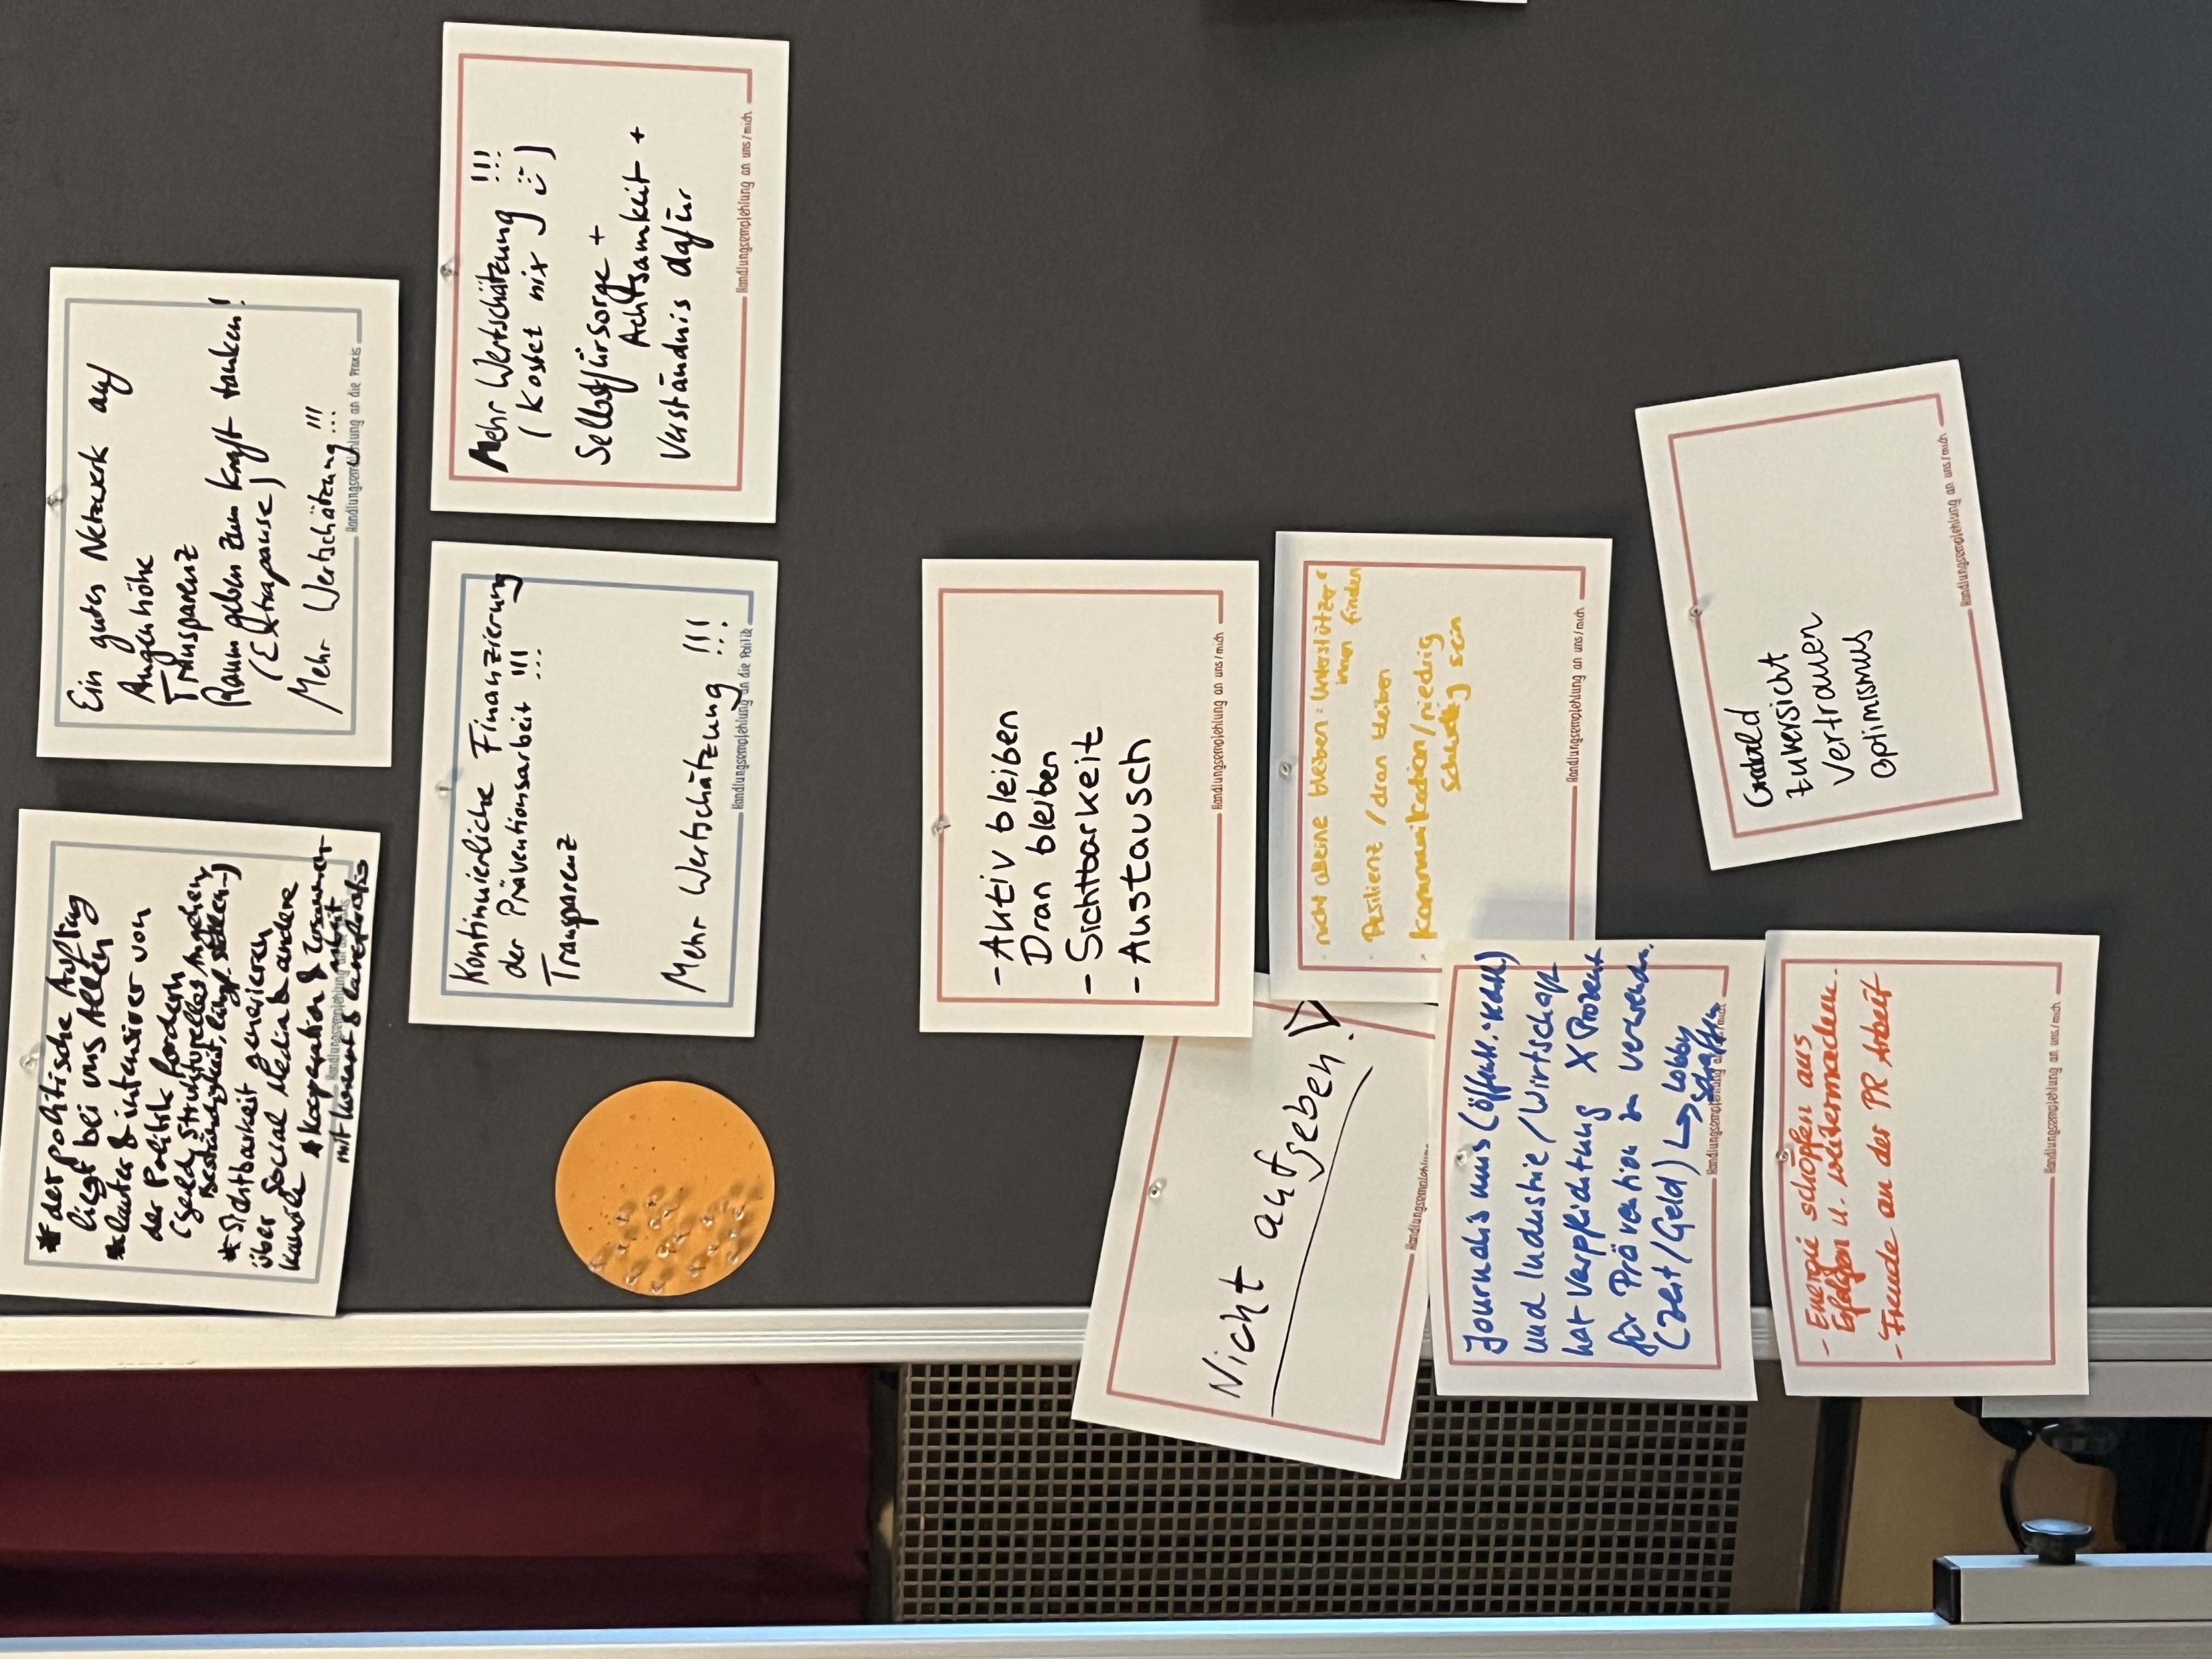 * der politische Auftrag
liegt bei uns Allen
* lauter & intensiver von
der Politik fordern
(Geld, Strukturelles Angehen,
Beständigkeit,
* Sichtbarkeit generieren
über Social Media & andere
Kanäle
* Kooperation & Zusammen-
arbeit
mit
Ein gutes Netzwerk auf
Augenhöhe
Transparenz
Raum geben zum Kraft tanken!
(Extrapause)
Mehr Wertschätzung!!!
Handlungsempfehlung an die Praxis
Kontinuierliche Finanzierung
der Präventionsarbeit !!!
Transparenz
Mehr Wertschätzung !!!
Handlungsempfehlung an die Politik
Mehr Wertschätzung !!!
(Kostet nix J :-))
Selbstfürsorge +
Achtsamkeit +
Verständnis dafür
Handlungsempfehlung an uns/mich
- Aktiv bleiben
Dran bleiben
- Sichtbarkeit
- Austausch
Handlungsempfehlung an uns/mich
Nicht aufgeben!
Handlungsempfehlung
· nicht alleine bleiben: Unterstützer*
innen finden
· Resilienz / dran bleiben
· Kommunikation/niedrig
schwellig sein
Handlungsempfehlung an uns/mich
Journalismus (Öffentl. rechtl)
und Industrie/Wirtschaft
hat Verpflichtung X Prozent
für Prävention zu verwenden.
(Zeit/Geld) ↳ Lobby
schaffen
Handlungsempfehlung
Geduld
Zuversicht
Vertrauen
Optimismus
Handlungsempfehlung an uns/mich
- Energie schöpfen aus
Erfolgen u. weitermachen.
- Freude an der PR Arbeit
Handlungsempfehlung an uns/mich